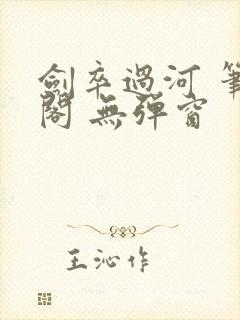 劍卒過河 筆
閣 無彈窗
王沁作